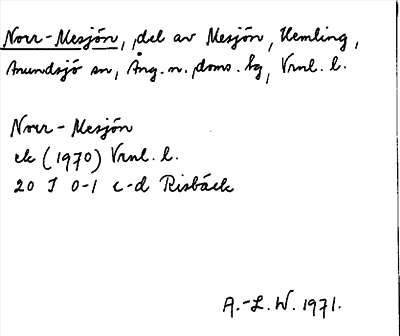 Norr-Mesjön, del av Mesjön, Hemling,
Anundsjö sn, Ång. n. doms. hg, Vrnl. l.
Norr-Mesjön
ek (1970) Vrnl. l.
20 J 0-1 c-d Risbäck
A.-L. W. 1971.